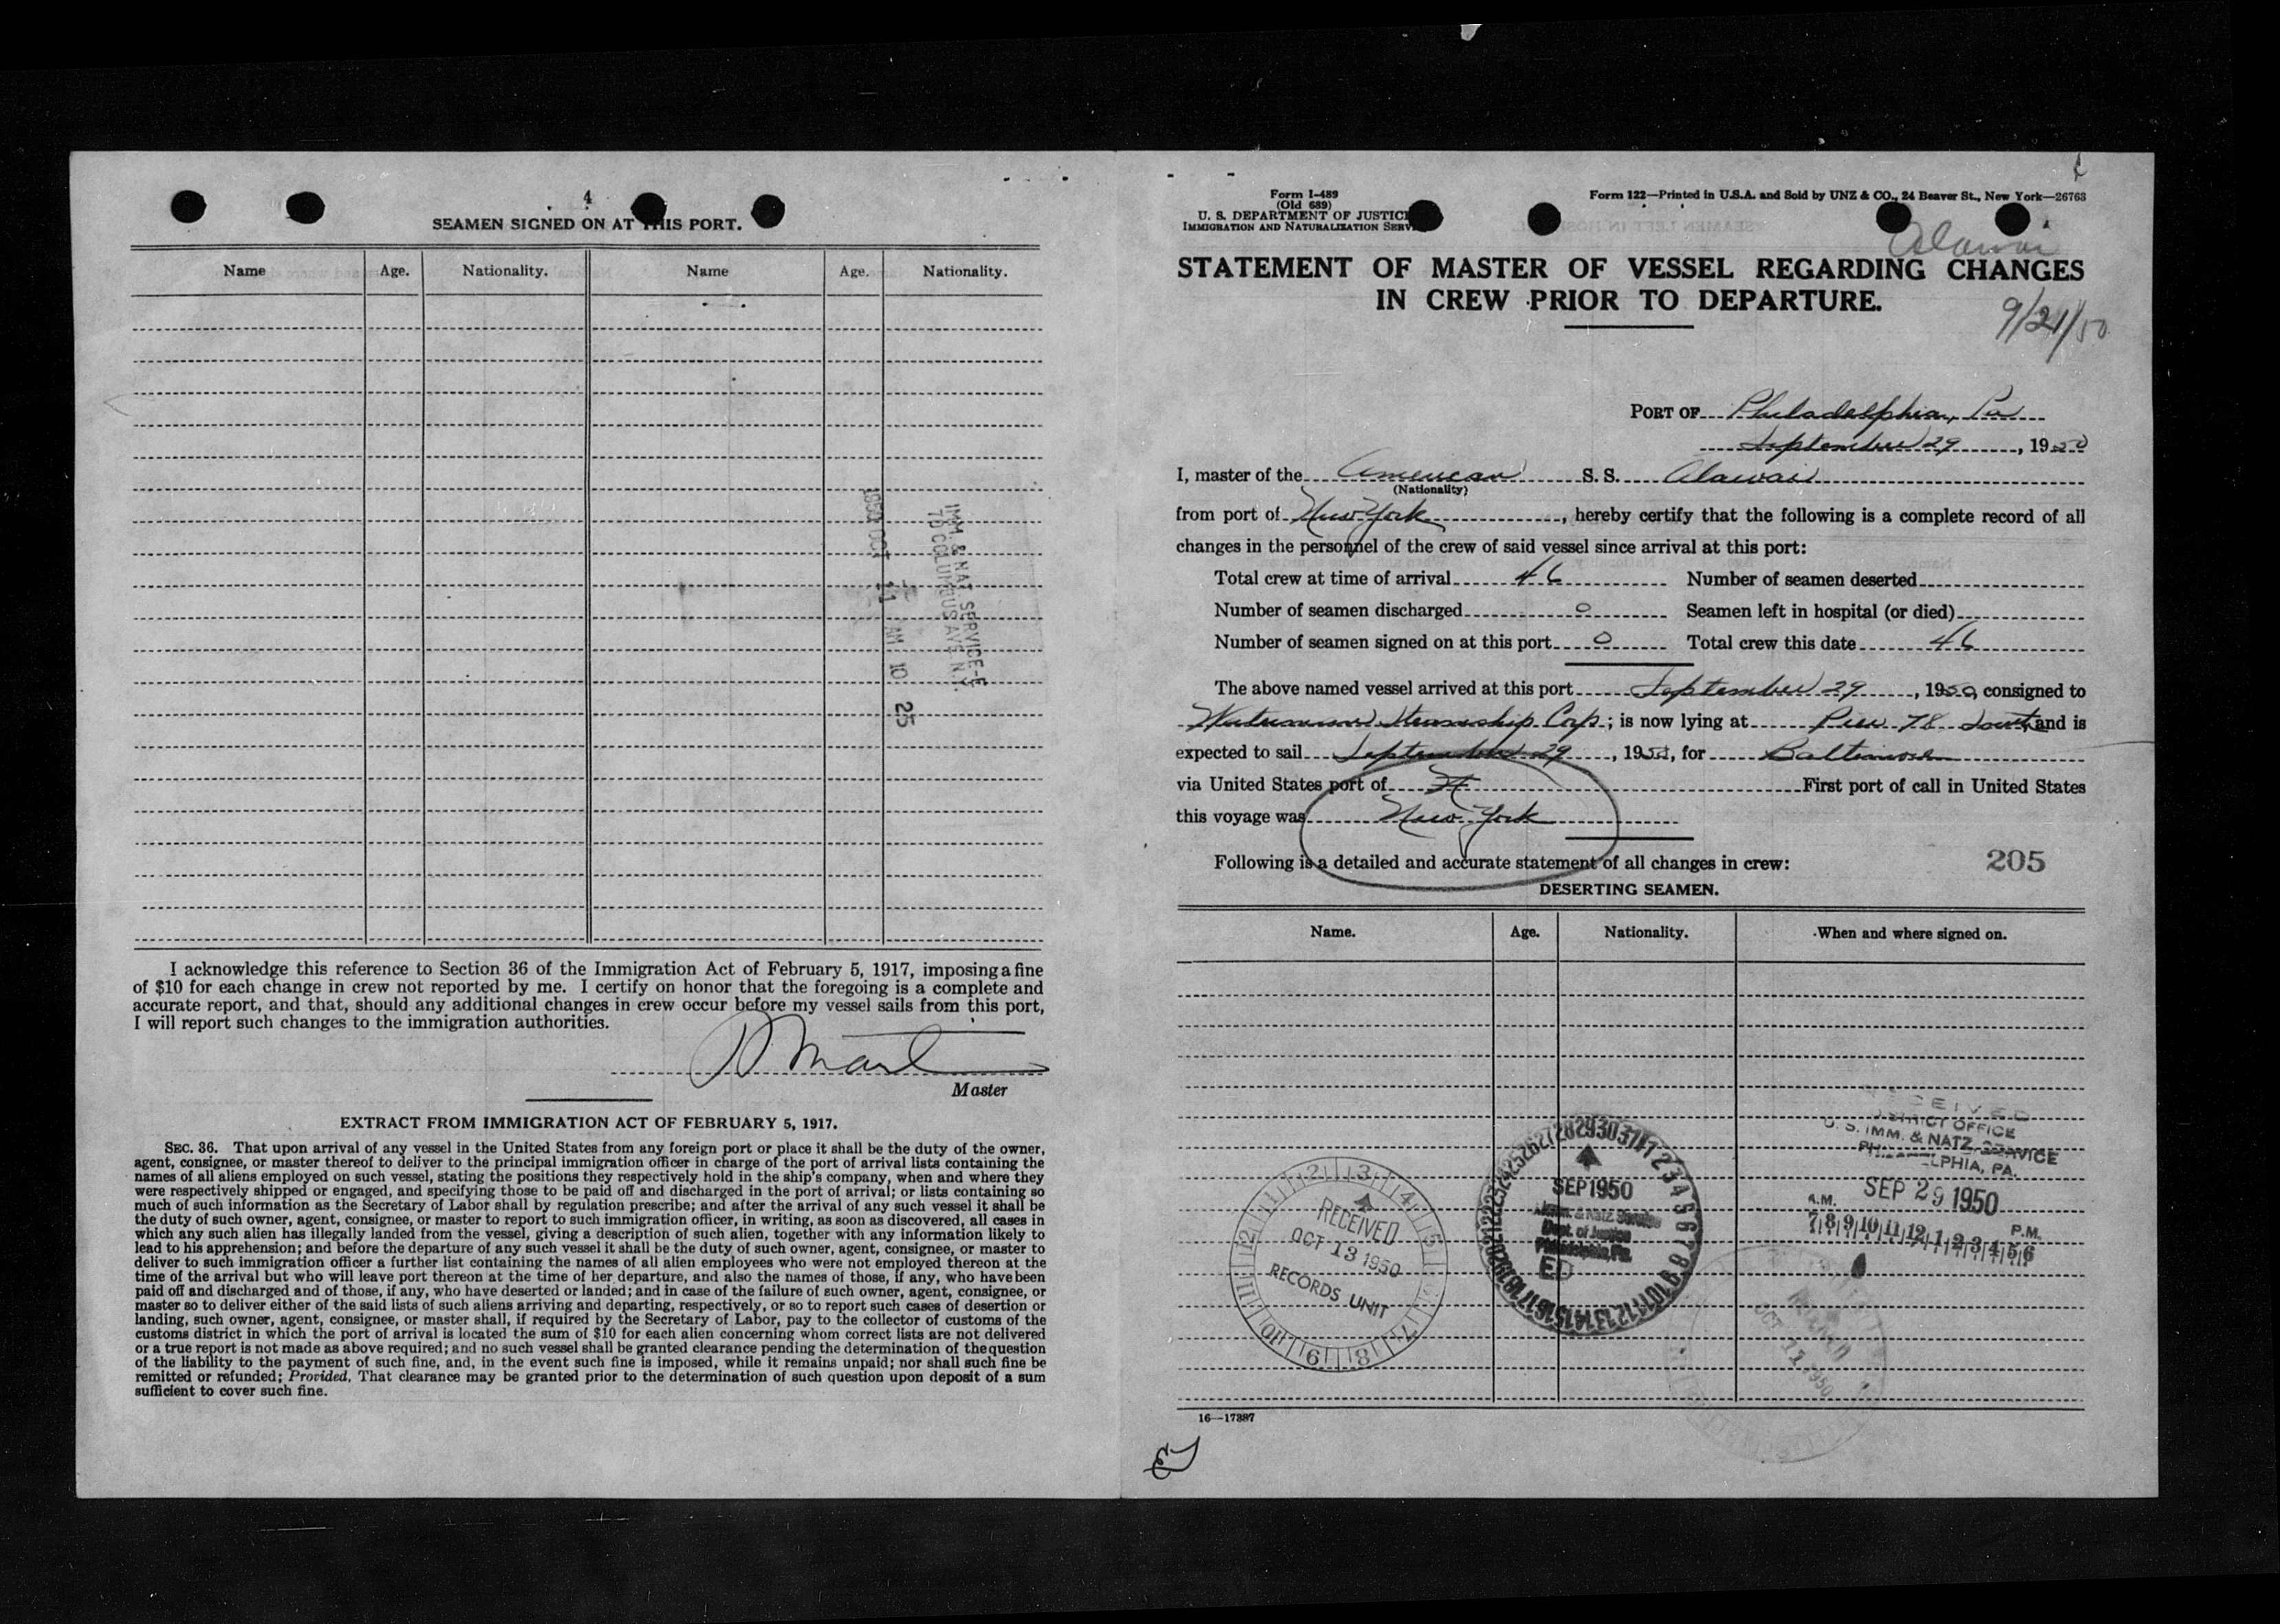 4
SEAMEN SIGNED ON AT THIS PORT.
Name Age. Nationality. Name Age. Nationality.
IMM. & NAT SERVICE-E
70 COLUMBUS AVE N.Y.
1950 OCT 11 AM 10 25
I acknowledge this reference to Section 36 of the Immigration Act of February 5, 1917, imposing a fine
of $10 for each change in crew not reported by me. I certify on honor that the foregoing is a complete and
accurate report, and that, should any additional changes in crew occur before my vessel sails from this port,
I will report such changes to the immigration authorities.
Master
EXTRACT FROM IMMIGRATION ACT OF FEBRUARY 5, 1917.
SEC. 36. That upon arrival of any vessel in the United States from any foreign port or place it shall be the duty of the owner,
agent, consignee, or master thereof to deliver to the principal immigration officer in charge of the port of arrival lists containing the
names of all aliens employed on such vessel, stating the positions they respectively hold in the ship's company, when and where they
were respectively shipped or engaged, and specifying those to be paid off and discharged in the port of arrival; or lists containing so
much of such information as the Secretary of Labor shall by regulation prescribe; and after the arrival of any such vessel it shall be
the duty of such owner, agent, consignee, or master to report to such immigration officer, in writing, as soon as discovered, all cases in
which any such alien has illegally landed from the vessel, giving a description of such alien, together with any information likely to
lead to his apprehension; and before the departure of any such vessel it shall be the duty of such owner, agent, consignee, or master to
deliver to such immigration officer a further list containing the names of all alien employees who were not employed thereon at the
time of the arrival but who will leave port thereon at the time of her departure, and also the names of those, if any, who have been
paid off and discharged and of those, if any, who have deserted or landed; and in case of the failure of such owner, agent, consignee, or
master so to deliver either of the said lists of such aliens arriving and departing, respectively, or so to report such cases of desertion or
landing, such owner, agent, consignee, or master shall, if required by the Secretary of Labor, pay to the collector of customs of the
customs district in which the port of arrival is located the sum of $10 for each alien concerning whom correct lists are not delivered
or a true report is not made as above required; and no such vessel shall be granted clearance pending the determination of the question
of the liability to the payment of such fine, and, in the event such fine is imposed, while it remains unpaid; nor shall such fine be
remitted or refunded; Provided, That clearance may be granted prior to the determination of such question upon deposit of a sum
sufficient to cover such fine.
Form I-489
(Old 689)
U. S. DEPARTMENT OF JUSTICE
IMMIGRATION AND NATURALIZATION SERVICE
Form 122—Printed in U.S.A. and Sold by UNZ & CO., 24 Beaver St., New York—26763
Alawai
STATEMENT OF MASTER OF VESSEL REGARDING CHANGES
IN CREW PRIOR TO DEPARTURE.
9/21/50
PORT OF Philadelphia, Pa
September 29, 1950
I, master of the American S. S. Alawai
(Nationality)
from port of New York, hereby certify that the following is a complete record of all
changes in the personnel of the crew of said vessel since arrival at this port:
Total crew at time of arrival 46 Number of seamen deserted
Number of seamen discharged 0 Seamen left in hospital (or died)
Number of seamen signed on at this port 0 Total crew this date 46
The above named vessel arrived at this port September 29, 1950, consigned to
Waterman Steamship Corp.; is now lying at Pier 78 South and is
expected to sail September 29, 1950, for Baltimore
via United States port of First port of call in United States
this voyage was New York
Following is a detailed and accurate statement of all changes in crew:
205
DESERTING SEAMEN.
Name. Age. Nationality. When and where signed on.
RECEIVED
DISTRICT OFFICE
U. S. IMM. & NATZ. SERVICE
PHILADELPHIA, PA.
SEP 29 1950
A.M. P.M.
7 8 9 10 11 12 1 2 3 4 5 6
SEP 1950
Immi. & Natz. Service
Dept. of Justice
Philadelphia, Pa.
ED
RECEIVED
OCT 13 1950
RECORDS UNIT
OCT 11 1950
16—17387